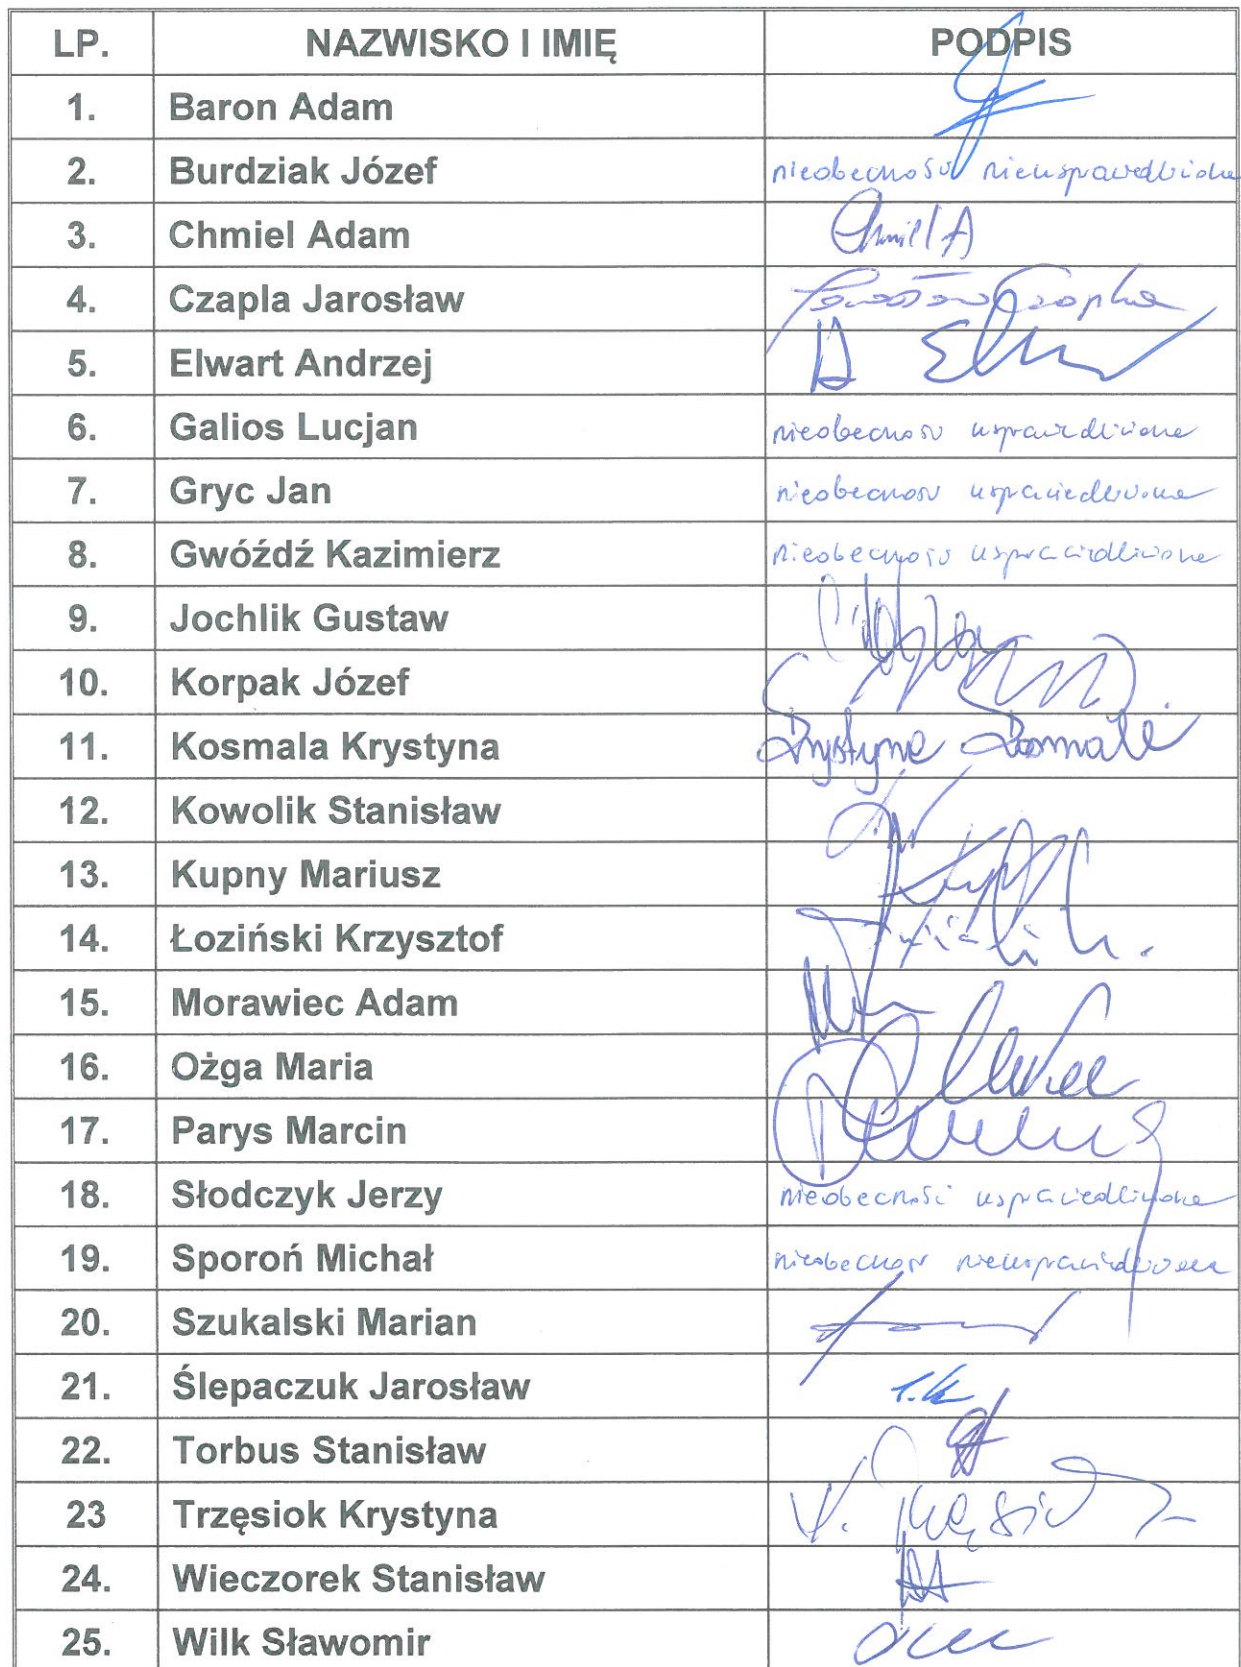 LP. NAZWISKO I IMIĘ PODPIS
1. Baron Adam
2. Burdziak Józef nieobecność nieusprawiedliwiona
3. Chmiel Adam Chmiel A
4. Czapla Jarosław Jarosław Czapla
5. Elwart Andrzej A
6. Galios Lucjan nieobecność usprawiedliwiona
7. Gryc Jan nieobecność usprawiedliwiona
8. Gwóźdź Kazimierz nieobecność usprawiedliwiona
9. Jochlik Gustaw
10. Korpak Józef
11. Kosmala Krystyna Krystyna Kosmala
12. Kowolik Stanisław
13. Kupny Mariusz
14. Łoziński Krzysztof
15. Morawiec Adam
16. Ożga Maria
17. Parys Marcin
18. Słodczyk Jerzy nieobecność usprawiedliwiona
19. Sporoń Michał nieobecność nieusprawiedliwiona
20. Szukalski Marian
21. Ślepaczuk Jarosław
22. Torbus Stanisław
23 Trzęsiok Krystyna K. Trzęsiok
24. Wieczorek Stanisław
25. Wilk Sławomir